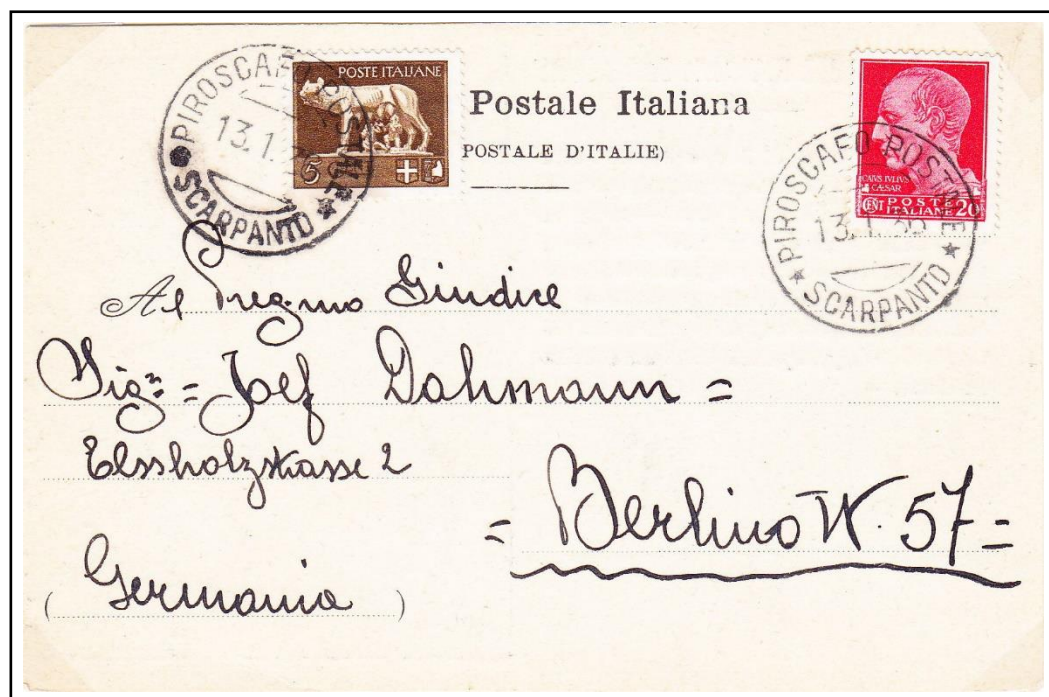 PIROSCAFO POSTALE
13.1.
SCARPANTO
POSTE ITALIANE
5
Postale Italiana
POSTALE D'ITALIE)
CAIVS IVLIVS
CÆSAR
CENT POSTE
ITALIANE 20
PIROSCAFO POSTALE
13.1.36
SCARPANTO
Al Pregmo Giudice
Sigr = Josef Dahmann =
Elssholzstrasse 2
= Berlino W. 57 =
(Germania)